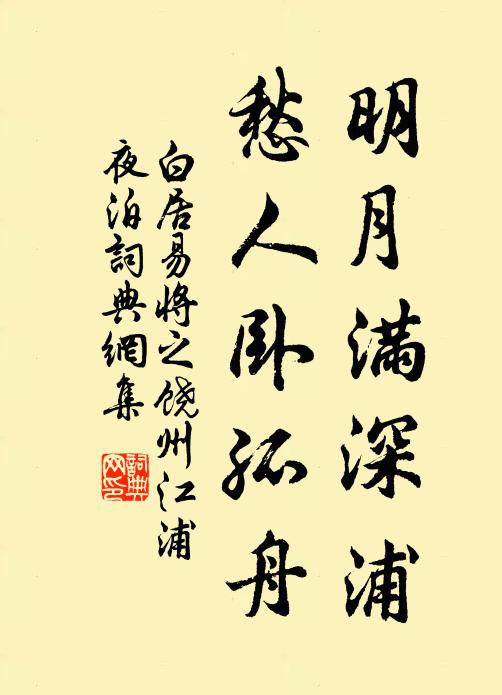 明月满深浦
愁人卧孤舟
白居易将之饶州江浦
夜泊詞典網集
詞典
网印